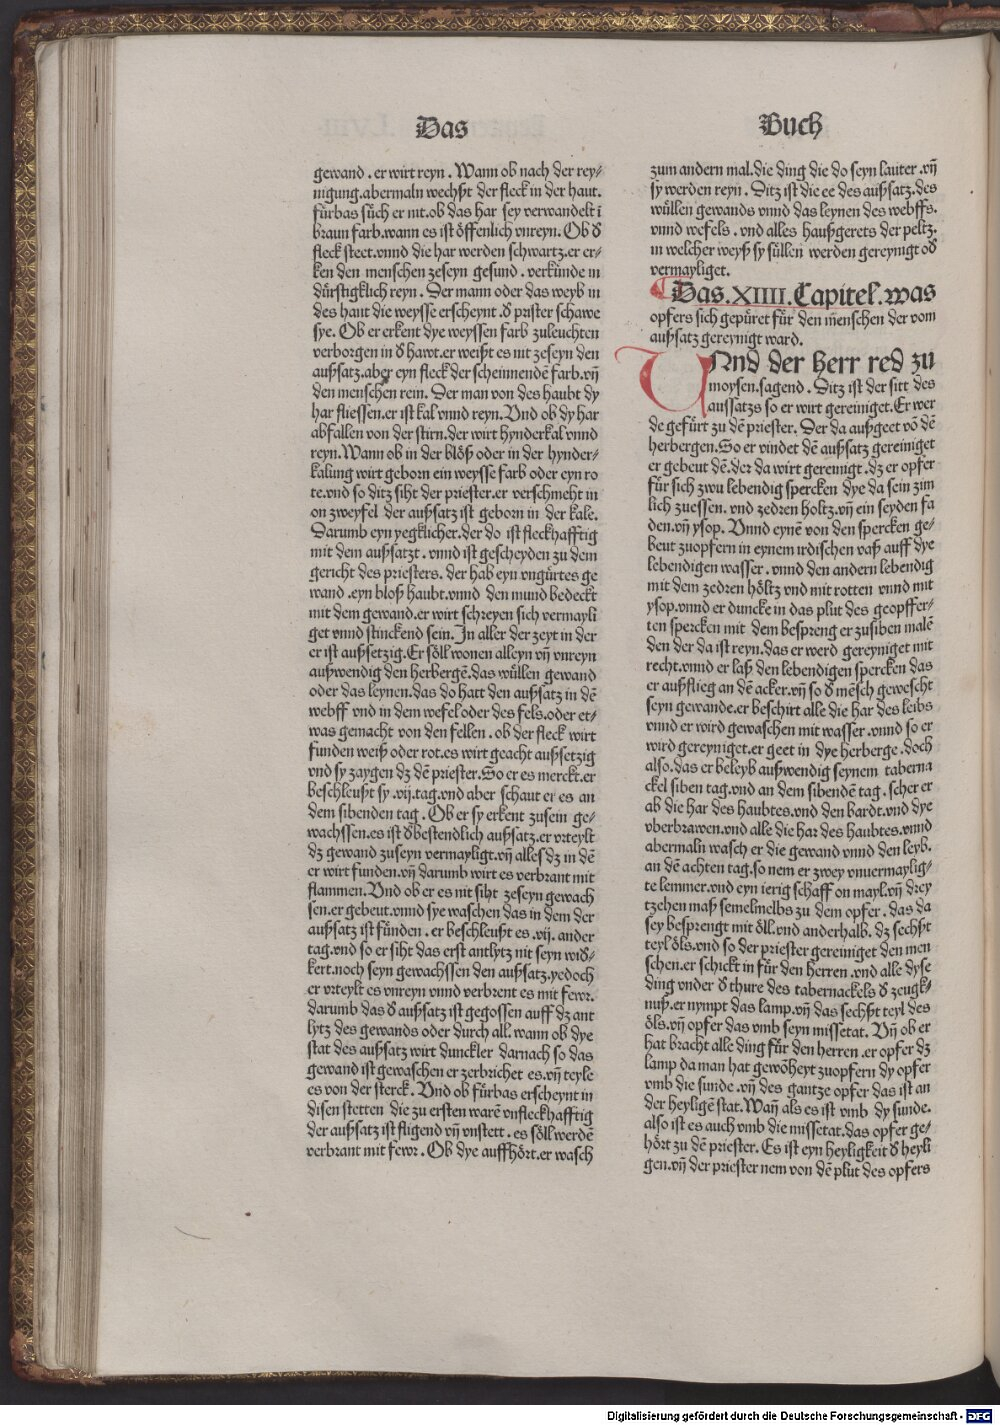 Das
Buch
gewand . er wirt reyn . Wann ob nach der rey⸗
nigung.abermaln wechßt der fleck in der haut.
fürbas sůch er nit.ob das har sey verwandelt ī
braun farb.wann es ist öffenlich vnreyn. Ob ð
fleck steet.vnnd die har werden schwartz.er er⸗
ken den menschen zeseyn gesund . verkünde in
dürstigklich reyn . Der mann oder das weyb in
des haut die weysse erscheynt .ð prister schawe
sye. Ob er erkent dye weyssen farb zuleuchten
verborgen in ð hawt.er weißt es nit zeseyn den
außsatz.aber eyn fleck der scheinnendē farb.vñ
den menschen rein. Der man von des haubt dy
har fliessen.er ist kal vnnd reyn. Vnd ob dy har
abfallen von der stirn.der wirt hynderkal vnnd
reyn.Wann ob in der blöß oder in der hynder⸗
kalung wirt geborn ein weysse farb oder eyn ro
te.vnd so ditz siht der priester.er verschmeht in
on zweyfel der außsatz ist geborn in der kale.
Darumb eyn yegklicher.der do ist fleckhafftig
mit dem außsatzt . vnnd ist gescheyden zu dem
gericht des priesters. der hab eyn vngürtes ge
wand .eyn bloß haubt.vnnd den mund bedeckt
mit dem gewand.er wirt schreyen sich vermayli
get vnnd stinckend sein.In aller der zeyt in der
er ist außsetzig.Er söll woonen alleyn vñ vnreyn
außwendig den herbergē.das wüllen gewand
oder das leynen.das do hatt den außsatz in dē
webff vnd in dem wefel oder des fels.oder et⸗
was gemacht von den fellen . ob der fleck wirt
funden weiß oder rot.es wirt geacht außsetzig
vnd sy zaygen dz dē priester.So er es merckt.er
beschleußt sy .vij.tag.vnd aber schaut er es an
dem sibenden tag . Ob er sy erkent zusein ge⸗
wachssen.es ist ðbestendlich außsatz.er vrteylt
dz gewand zuseyn vermayligt.vñ alles dz in dē
er wirt funden.vñ darumb wirt es verbrant mit
flammen.Vnd ob er es nit siht zeseyn gewach
sen.er gebeut.vnnd sye waschen das in dem der
außsatz ist fünden . er beschleußt es .vij. ander
tag.vnd so er siht das erst antlytz nit seyn wið⸗
kert.noch seyn gewachssen den außsatz.yedoch
er vrteylt es vnreyn vnnd verbrent es mit fewr.
darumb das ð außsatz ist gegossen auff dz ant
lytz des gewands oder durch all. wann ob dye
stat des außsatz wirt dunckler darnach so das
gewand ist gewaschen er zerbrichet es.vñ teyle
es von der sterck . Vnd ob fürbas erscheynt in
disen stetten die zu ersten warē vnfleckhafftig
der außsatz ist fligend vñ vnstett . es söll werdē
verbrant mit fewr . Ob dye auffhört.er wasch
zum andern mal.die ding die do seyn lauter .vñ
sy werden reyn . Ditz ist die ee des außsatz.des
wüllen gewands vnnd das leynen des webffs.
vnnd wefels . vnd alles haußgerets der peltz.
in welcher weyß sy süllen werden gereynigt oð
vermayliget.
Das.XIIII.Capitel.was
opfers sich gepüret für den menschen der vom
außsatz gereynigt ward.
VNnd der herr red zu
moysen.sagend . Ditz ist der sitt des
aussatzs so er wirt gereiniget.Er wer
de gefürt zu dē priester. Der da außgeet vō dē
herbergen.So er vindet dē außsatz gereiniget
er gebeut dē.der da wirt gereinigt .dz er opfer
für sich zwu lebendig spercken dye da sein zim
lich zuessen. vnd zedren holtz.vñ ein seyden fa
den.vñ ysop. Vnnd eynē von den spercken ge⸗
beut zuopfern in eynem irdischen vaß auff dye
lebendigen wasser . vnnd den andern lebendig
mit dem zedren höltz vnd mit rotten vnnd mit
ysop.vnnd er duncke in das plut des geopffer⸗
ten spercken mit dem bespreng er zusiben malē
den der da ist reyn.das er werd gereyniget mit
recht.vnnd er laß den lebendigen spercken das
er außflieg an dē acker.vñ so ð mēsch gewescht
seyn gewande.er beschirt alle die har des leibs
vnnd er wird gewaschen mit wasser .vnnd so er
wird gereyniget.er geet in dye herberge .doch
also.das er beleyb außwendig seynem taberna
ckel siben tag.vnd an dem sibendē tag . scher er
ab die har des haubtes.vnd den bardt.vnd dye
vberbrawen.vnd alle die har des haubtes.vnnd
abermaln wasch er die gewand vnnd den leyb.
an dē achten tag.so nem er zwey vnuermaylig⸗
te lemmer.vnd eyn ierig schaff on mayl.vñ drey
tzehen maß semelmelbs zu dem opfer . das da
sey besprengt mit öll.vnd anderhalb. dz sechßt
teyl öls.vnd so der priester gereiniget den men
schen.er schickt in für den herren .vnd alle dyse
ding vnder ð thure des tabernackels ð zeugk⸗
nuß.er nympt das lamp.vñ das sechßt teyl des
öls.vñ opfer das vmb seyn missetat. Vñ ob er
hat bracht alle ding für den herren .er opfer dz
lamp da man hat gewöheyt zuopfern dy opfer
vmb die sunde .vñ des gantze opfer das ist an
der heyligē stat.Wañ als es ist vmb dy sunde.
also ist es auch vmb die missetat.das opfer ge⸗
hört zu dē priester. Es ist eyn heyligkeit ð heyli
gen.vñ der priester nem von dē plut des opfers
Digitalisierung gefördert durch die Deutsche Forschungsgemeinschaft - DFG